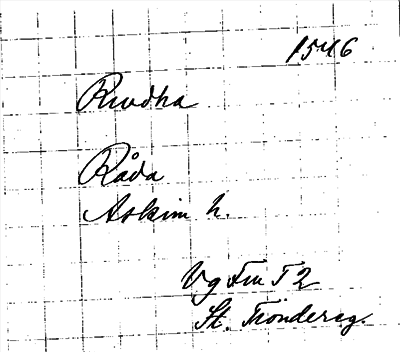 1546
Rwdha
Råda
Askim h.
Vg Fm T 2
St. Tröndereg.